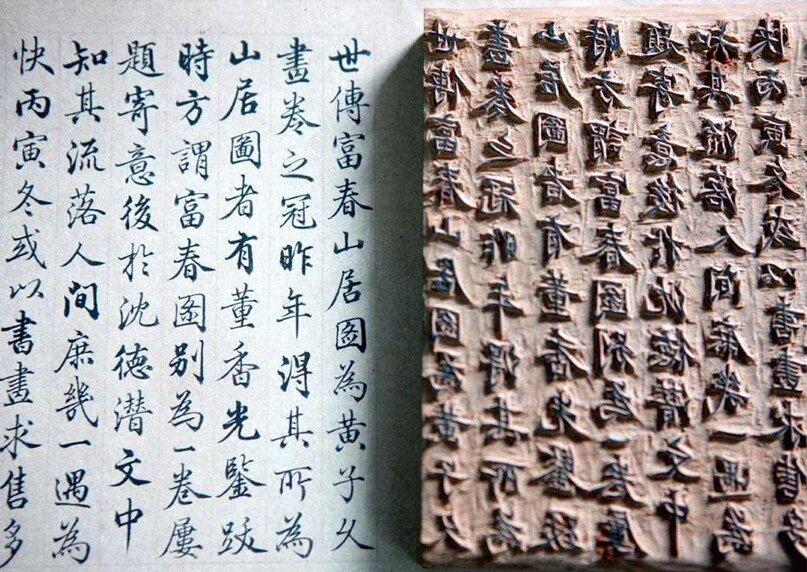 世傳富春山居圖為黃子久
畫卷之冠昨年得其所為
山居圖者有董香光鑒跋
時方謂富春圖別為一卷屢
題寄意後於沈德潛文中
知其流落人間庶幾一遇為
快丙寅冬或以書畫求售多
世傳富春山居圖為黃子久
畫卷之冠昨年得其所為
山居圖者有董香光鑒跋
時方謂富春圖別為一卷屢
題寄意後於沈德潛文中
知其流落人間庶幾一遇為
快丙寅冬或以書畫求售多